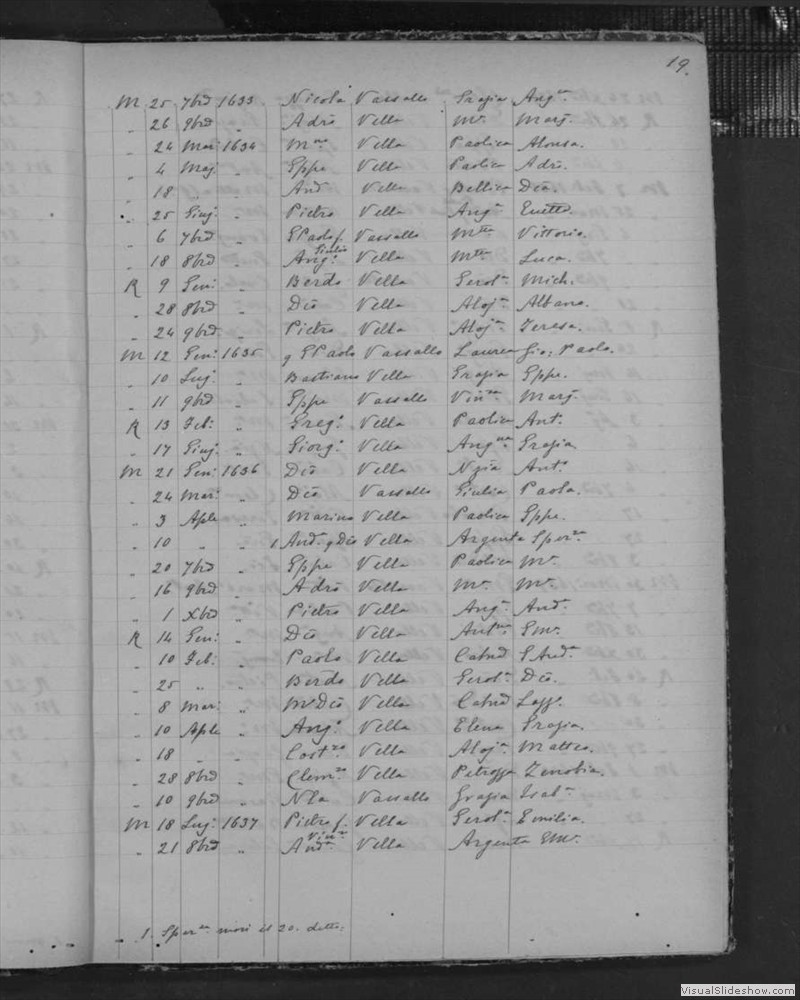 19.
M 25 7brē 1633. Nicola Vassallo Grazia Ang.ca
„ 26 9brē Adrō Vella M.a Marj
„ 24 Mar: 1634 M.no Vella Paolica Alonsa.
„ 4 Maj „ Gppe Vella Paolica Adrō.
„ 18 „ „ And Vella Bellica Dīo.
„ 25 Giuj „ Pietro Vella Ang.a
„ 6 7brē „ GPaolo f. Vassallo M.tta Vittoria.
Giulio
„ 18 8brē „ Ang.o Vella M.tta Luca.
R 9 Gen: „ Berdō Vella Gerol.a Mich.
„ 28 8brē „ Dīo Vella Aloj.a Albano.
„ 24 9brē „ Pietro Vella Aloj.a Teresa.
M 12 Gen: 1635 q GPaolo Vassallo Laurea Gio: Paolo.
„ 10 Luj: „ Bastiano Vella Grazia Gppe.
„ 11 9brē „ Gppe Vassallo Vin.za Marj
R 13 Feb: „ Greg.o Vella Paolica Ant.o
„ 17 Giuj: „ Giorg.o Vella Ang.ca Grazia
M 21 Gen: 1636 Dīo Vella Ngia Ant.o
„ 24 Mar: „ Dīo Vassallo Giulia Paola.
„ 3 Aple „ Marino Vella Paolica Gppe.
„ 10 „ „ 1. And.a q Dīo Vella Argenta Sper.za
„ 20 7brē „ Gppe Vella Paolica M.a
„ 16 9brē „ Adrō Vella M.a M.a
„ 1 Xbrē „ Pietro Vella Ang.a And.a
R 14 Gen: „ Dīo Vella Ant.na GM.a
„ 10 Feb: „ Paolo Vella Catnā GAnd.a
„ 25 „ „ Berdō Vella Gerol.a Dīo.
„ 8 Mar: „ M.o Dīo Vella Catnā
„ 10 Aple „ Ang.o Vella Elena Grazia.
„ 18 „ „ Cost.zo Vella Aloj.a Matteo.
„ 28 8brē „ Clem.zo Vella Petrozza Zenobia.
„ 10 9brē „ Nla Vassallo Grazia Isab.a
M 18 Luj: 1637 Pietro f. Vella Gerol.a Emilia.
Vin.o
„ 21 8brē „ And.a Vella Argenta GM.a
1. Sper.za morì il 20. detto:
VisualSlideshow.com